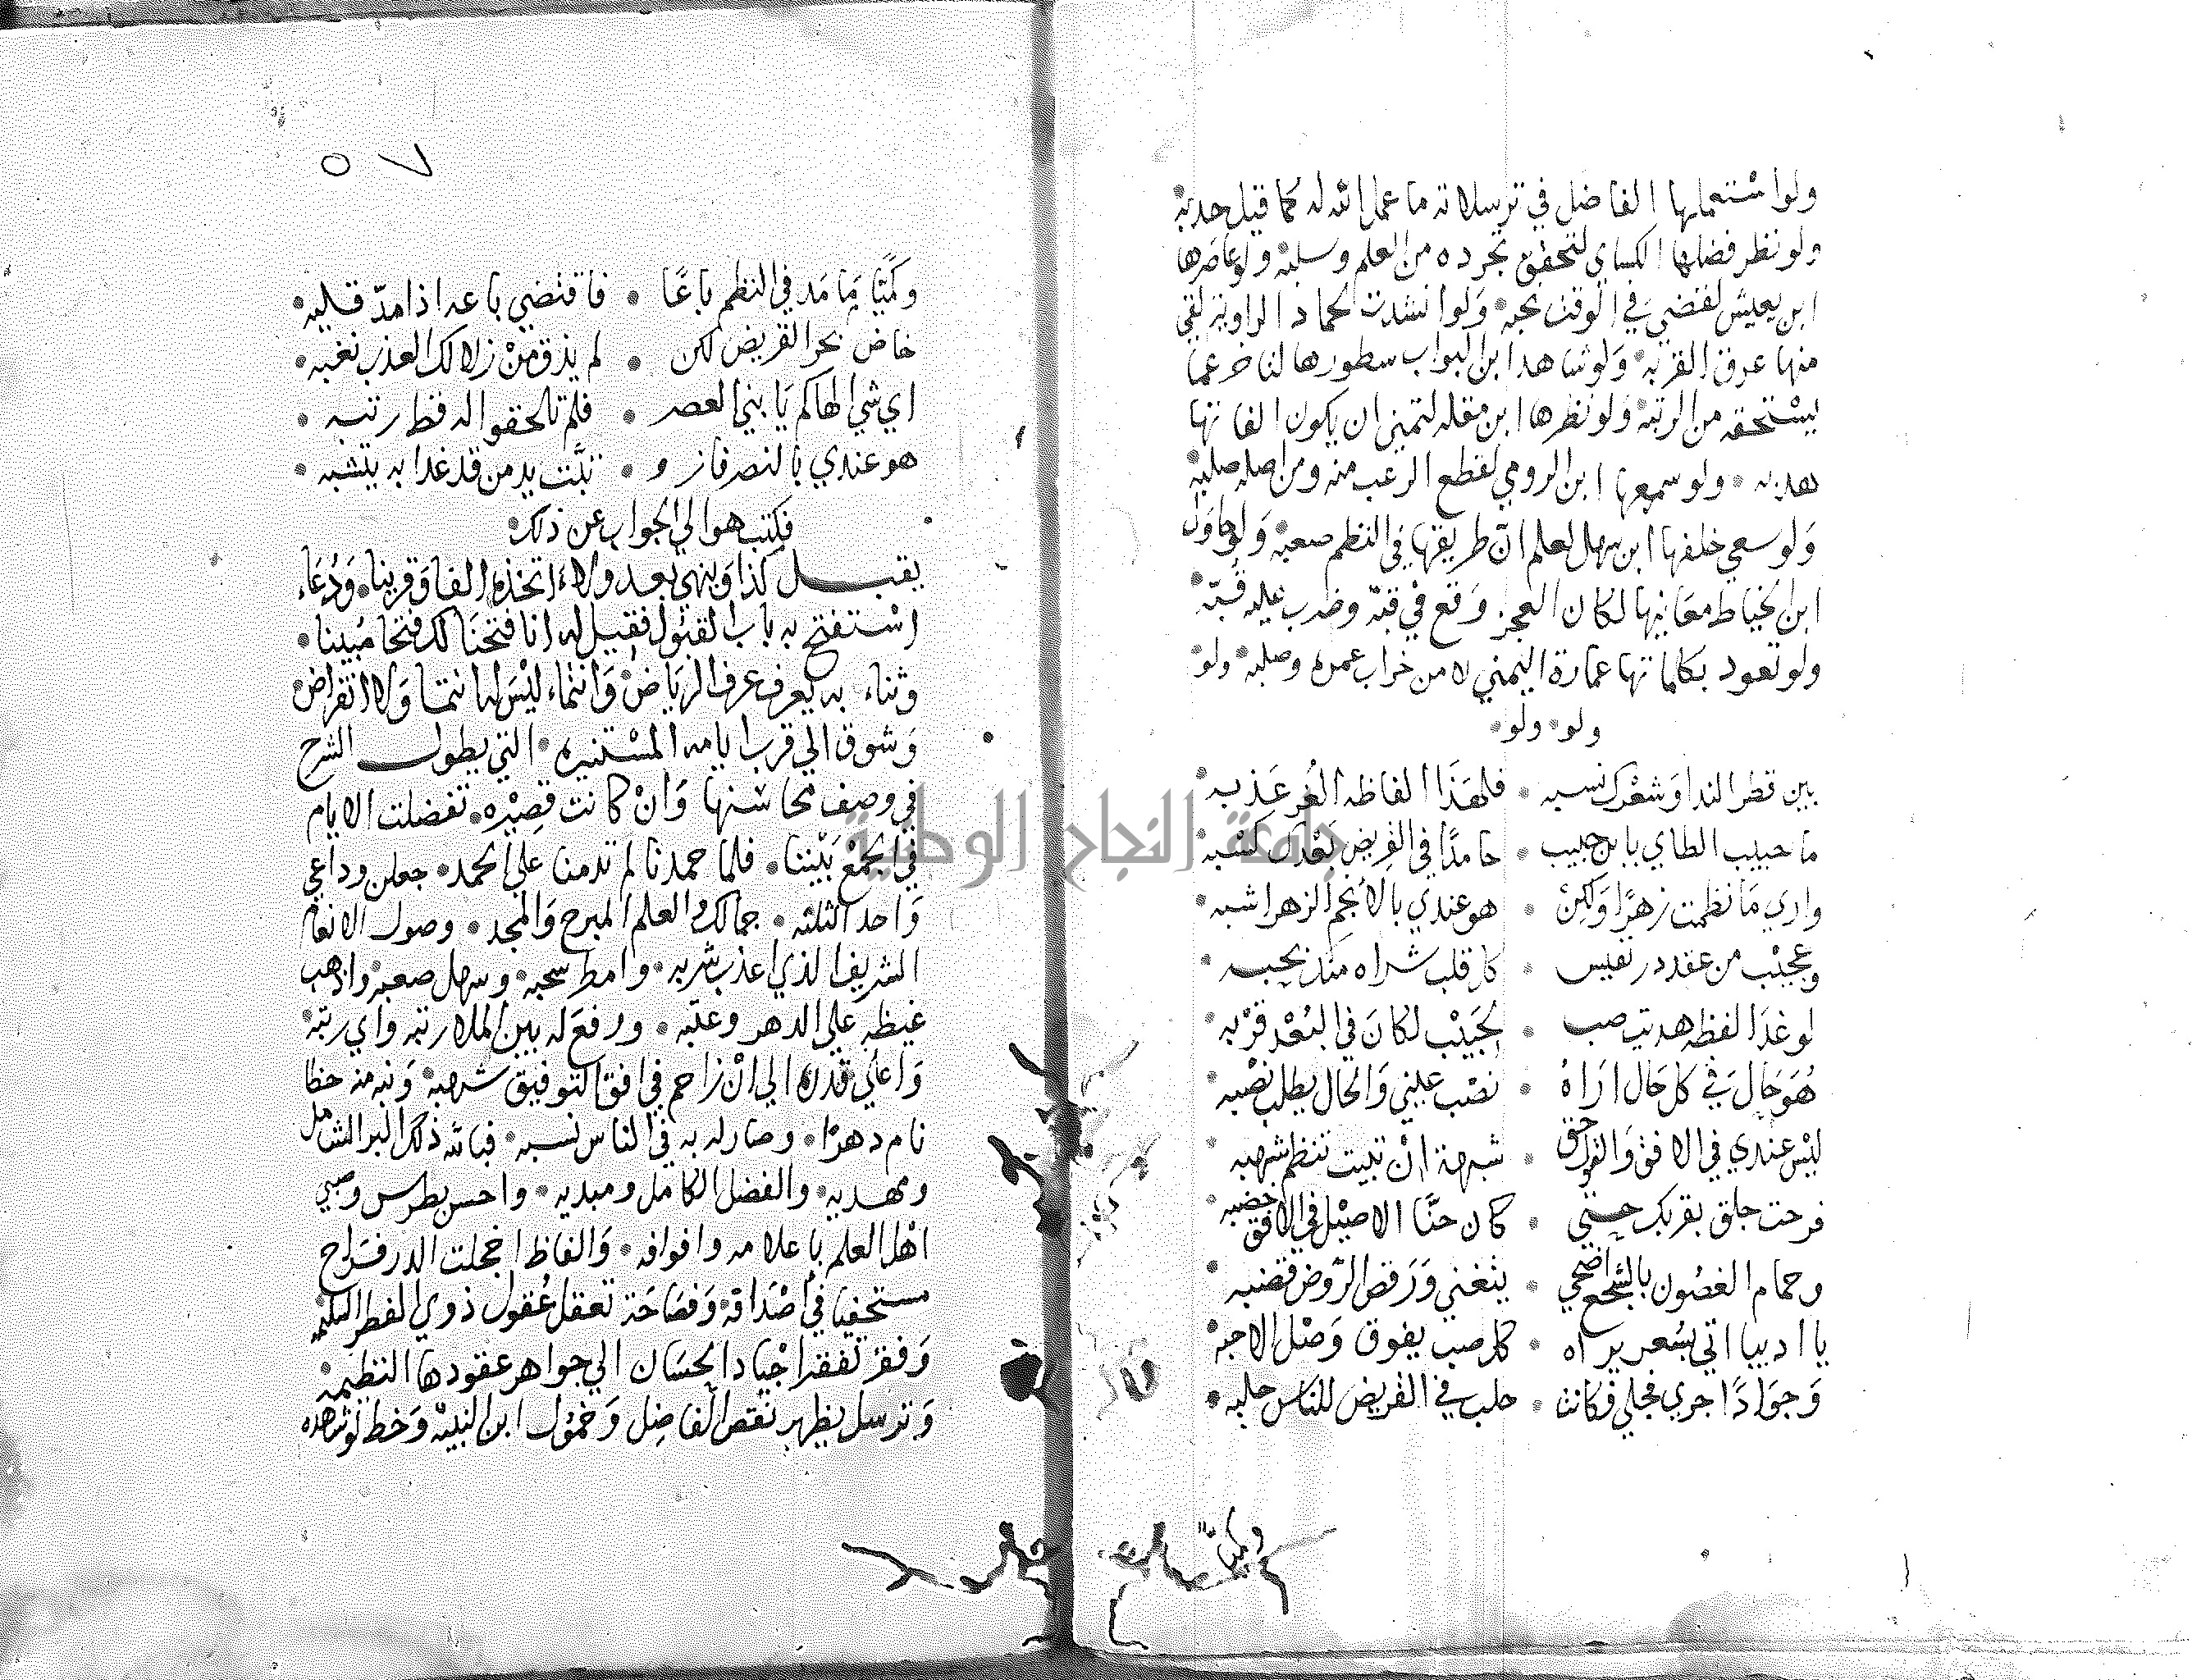 ولو استعملها الفاضل في ترسلاته ما عمل الله له كما قيل حدبه
ولو نظر فضلها الكساي لتحقق تجرده من العلم وسلبه ولو عاصرها
ابن يعيش لقضي في الوقت نحبه ولو انشدت لحماد الراوية لقي
منها عرق القربه ولو شاهد ابن البواب سطورها لتاخر عما
يستحقه من الرتبه ولو نظرها ابن مقله لتمني ان يكون الفاتها
هدبه ولو سمعها ابن الرومي لقطع الرعب منه ومن اصله صلبه
ولو سعي خلفها ابن سهل لعلم ان طريقها في النظم صعبه ولو حاول
ابن الخياط معانيها لكان العجز وقع في قبه وضرب عليه قبه
ولو تعود بكلماتها عمارة اليمني لا من خراب عمره وصلبه ولو
ولو ولو
بين قطر الندا وشعرك نسبه فلهذا الفاظه الغر عذبه
ما حبيب الطاي يا بن حبيب حامدا في القريض بعدك كسبه
واري ما نظمت زهرا ولكن هو عندي بالانجم الزهر اشبه
وعجيب من عقد در نفيس كل قلب شراه منك بحبه
لو غدا لفظه هدية صب لحبيب لكان في البعد قربه
هو حال في كل حال اراه نصب عيني والحال يطلب نصبه
ليس عندي في الافق والفرق حق شبهة ان تبيت تنظم شهبه
فرحت جلق بقربك حتي كان حنا الاصيل في الافق خضبه
وحمام الغصون بالشجع اضحي يتغني ورقص الروض قضبه
يا اديبا اتي بشعر يراه كل صب يفوق وصل الاحبه
وجوادا جري فجلي فكانت حلب في القريض للناس حلبه
وكميتا
٥٧
وكميتا ما مد في النظم باعا فاقتضي باعه اذا مد قلبه
خاض بحر القريض لكن لم يذق من زلالك العذب نغبه
اي شي الهاكم يا بني العصر فلم تلحقوا له قط رتبه
هو عندي بالنصر فاز و تبت يد من قد غدا به يتشبه
فكتب هو الي الجواب عن ذلك
يقبل كذا وينهي بعد ولاء اتخذه الفا وقرينا ودعاء
استفتح به باب القبول فقيل له انا فتحنا لك فتحا مبينا
وثناء به يعرف عرف الرياض وانتماء ليس له انتها ولا انقراض
وشوق الي قرب ايامه المستنيره التي يطول الشرح
في وصف محاسنها وان كانت قصيره تفضلت الايام
في الجمع بيننا فلما حمدنا لم تدمنا علي الحمد جعلن وداعي
واحد الثلثه جمالك والعلم المبرح والمجد وصول الانعام
الشريف الذي اعذب شربه وامطر سحبه وسهل صعبه واذهب
غيظه علي الدهر وعتبه ورفع له بين الملا رتبه واي رتبة
واعلي قدره الي ان زاحم في افق التوفيق شهبه ونبه منه حظا
نام دهرا وصار له به في الناس نسبه فبالله ذلك البر الشامل
ومهديه والفضل الكامل ومبديه واحسن بطرس وصي
اهل العلم باعلامه وافوافه والفاظ اخجلت الدر فراح
مستخفيا في اصدافه وفصاحة تعقل عقول ذوي الفطر السليمه
وفقر تفقر اجياد الحسان الي جواهر عقودها النظيمه
وترسل يظهر نقص الفاضل وخمول ابن النبيه وخط لو شاهده
جامعة النجاح الوطنية